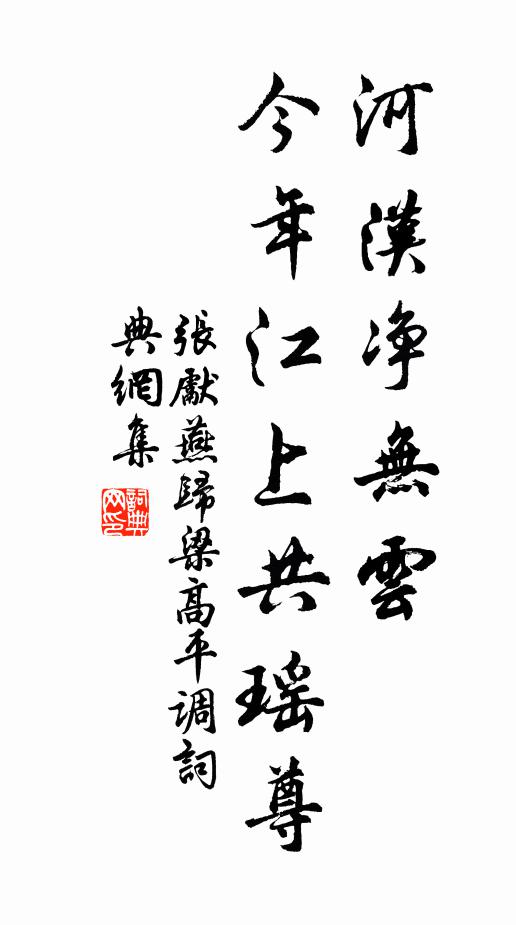 河漢净無雲
今年江上共瑶尊
張獻燕歸梁高平调詞
典網集
詞典
网印